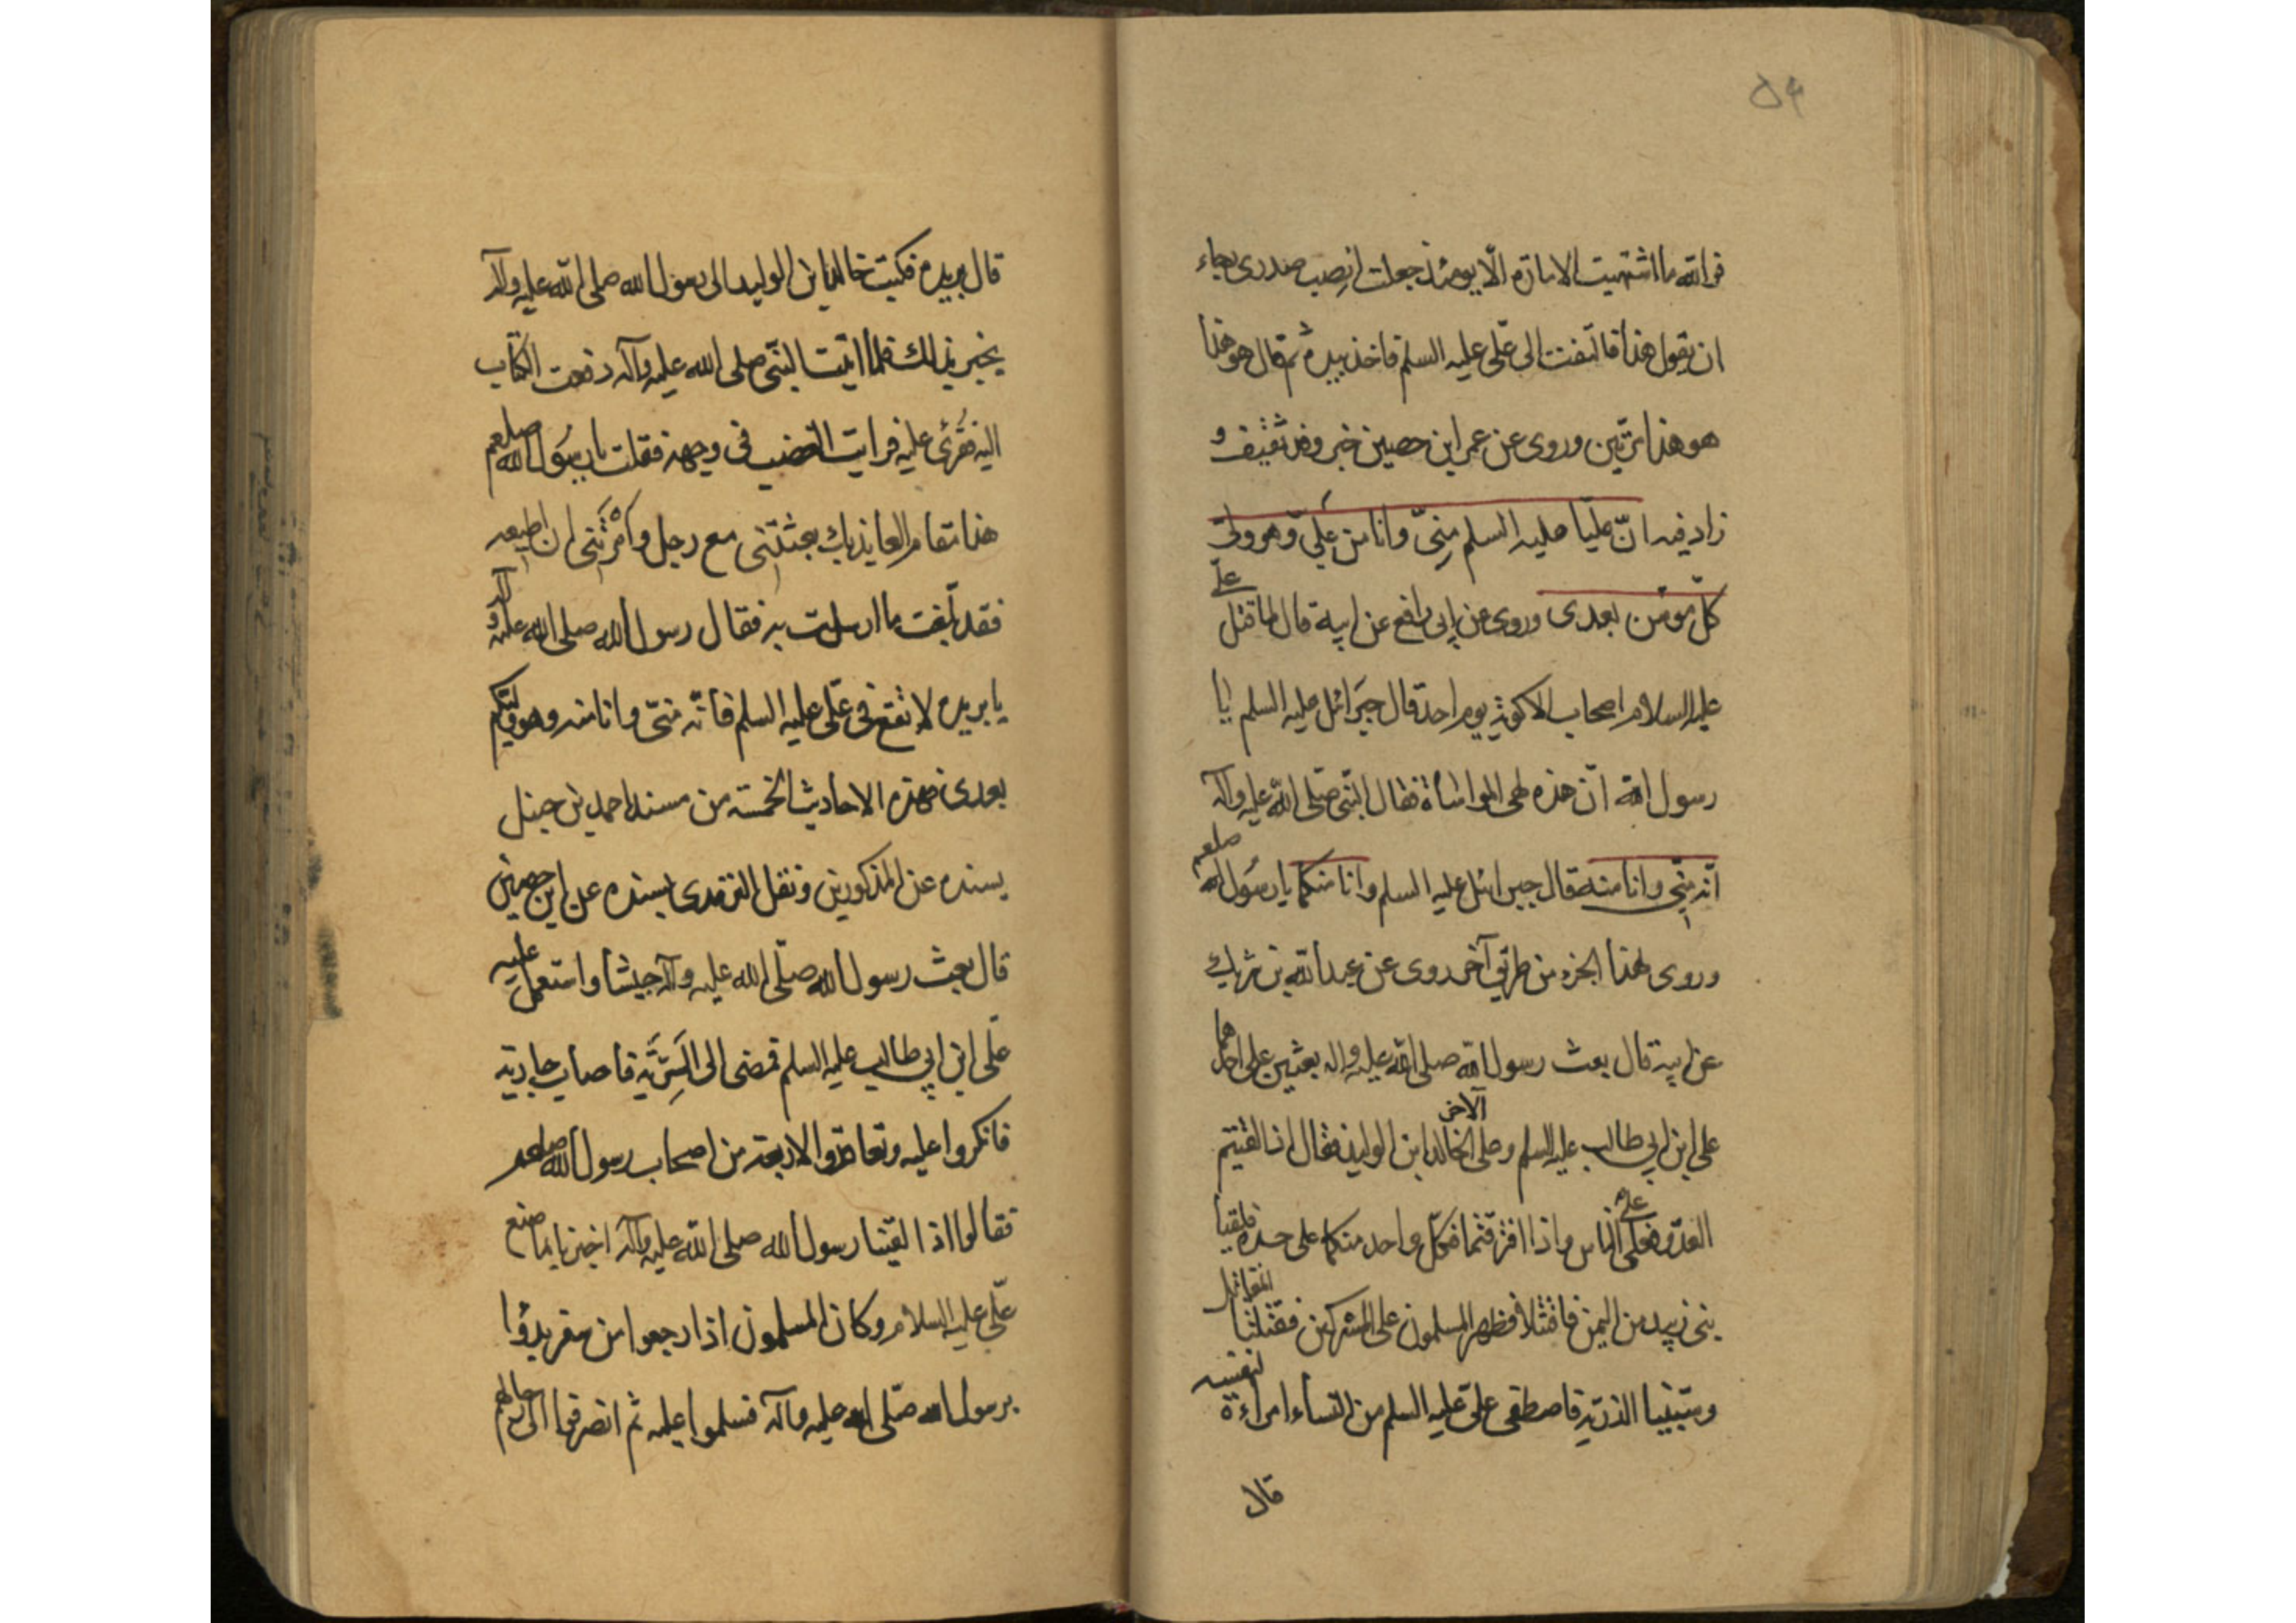 ۵۴
فوالله ما اشتهيت الامارة الّا يومئذ جعلت انصب صدرى رجاء
ان يقول هذا فالتفت الى علّى عليه السلم فاخذ بيده ثم قال هو هذا
هو هذا مرّتين وروى عن عمر ابن حصين خبر وفد ثقيف و
زاد فيه انّ عليّا عليه السلم منّى وانا من علىّ وهو ولىّ
كلّ مؤمن بعدى وروى عن ابى رافع عن ابيه قال لما قتل علىّ
عليه السلام اصحاب الالوية يوم احد قال جبرائل عليه السلم يا
رسول الله انّ هذه لهى المواساة فقال النبّى صلّى الله عليه وآله
انّه منّى وانا منه قال جبرائل عليه السلم وانا منكما يا رسول الله صلعم
وروى لهذا الجزء من طريق آخر روى عن عبدالله بن
عن ابيه قال بعث رسول الله صلى الله عليه واله بعثين على احدهما
على ابن ابي طالب عليه السلم وعلى الآخر خالد ابن الوليد فقال اذا لقيتم
العدّو فعلى على الناس واذا افترقتما فكلّ واحد منكما على حدة فلقينا
بنى زبيد من اليمن فاقتتلا فظهر المسلمون على المشركين فقتلنا المقاتل
وسّبينا الذرّيه فاصطفى علىّ عليه السلم من النساء امراءة لنفسه
قال
قال بريده فكتب خالد ابن الوليد الى رسول الله صلى الله عليه وآله
يخبر بذالك فلما اتيت النبّى صلى الله عليه وآله دفعت الكتاب
اليه فقرئ عليه فرايت الغضب فى وجهه فقلت يا رسول الله صلعم
هذا مقام العايذ بك بعثتنى مع رجل وامرتنى ان اطيعه
فقد بلّغت ما ارسلت به فقال رسول الله صلى الله عليه وآله
يا بريده لا تقع فى علّى عليه السلم فانّه منّى وانا منه وهو وليّكم
بعدى فهذه الاحاديث الخمسة من مسند احمد بن حنبل
يسنده عن المذكورين ونقل الترمدى بسنده عن ابن حصين
قال بعث رسول الله صلّى الله عليه وآله جيشا واستعمل عليه
علّى ابن ابي طالب عليه السلم فمضى الى السّريّة فاصاب جارية
فانكروا عليه وتعاقدوا الاربعة من اصحاب رسول الله صلعم
فقالوا اذا لقينا رسول الله صلى الله عليه وآله اخبرنا بما صنع
علّى عليه السلام وكان المسلمون اذا رجعوا من سفر بدؤا
برسول الله صلّى الله عليه وآله فسلموا عليه ثم انصرفوا الى رحالهم